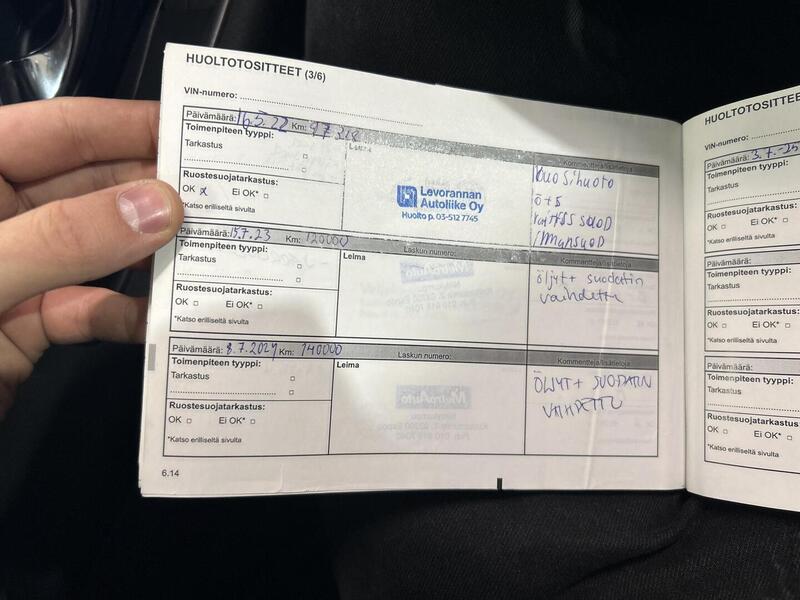 HUOLTOTOSITTEET (3/6)
VIN-numero:
Päivämäärä: 16.5.22 Km: 97 328
Toimenpiteen tyyppi:
Tarkastus
Ruostesuojatarkastus:
OK x Ei OK*
*Katso erilliseltä sivulta
Levorannan
Autoliike Oy
Huolto p. 03-512 7745
Kommentteja/lisätietoja
Vuosihuolto
ö+s
raitis s suoD
ImansuoD
Päivämäärä: 15.7.23 Km: 120000 Laskun numero:
Toimenpiteen tyyppi:
Tarkastus
Ruostesuojatarkastus:
OK Ei OK*
*Katso erilliseltä sivulta
Leima
Kommentteja/lisätietoja
öljyt + suodatin
vaihdettu
Päivämäärä: 8.7.2024 Km: 140000 Laskun numero:
Toimenpiteen tyyppi:
Tarkastus
Ruostesuojatarkastus:
OK Ei OK*
*Katso erilliseltä sivulta
Leima
Kommentteja/lisätietoja
ÖLJYT + SUODATIN
VAIHDETTU
6.14
HUOLTOTOSITTEE
VIN-numero:
Päivämäärä: 3.7.-25
Toimenpiteen tyyppi:
Tarkastus
Ruostesuojatarkastus:
OK Ei OK*
*Katso erilliseltä sivulta
Päivämäärä:
Toimenpiteen tyyppi:
Tarkastus
Ruostesuojatarkastus:
OK Ei OK*
*Katso erilliseltä sivulta
Päivämäärä:
Toimenpiteen tyyppi:
Tarkastus
Ruostesuojatarkastus:
OK Ei OK*
*Katso erilliseltä sivulta